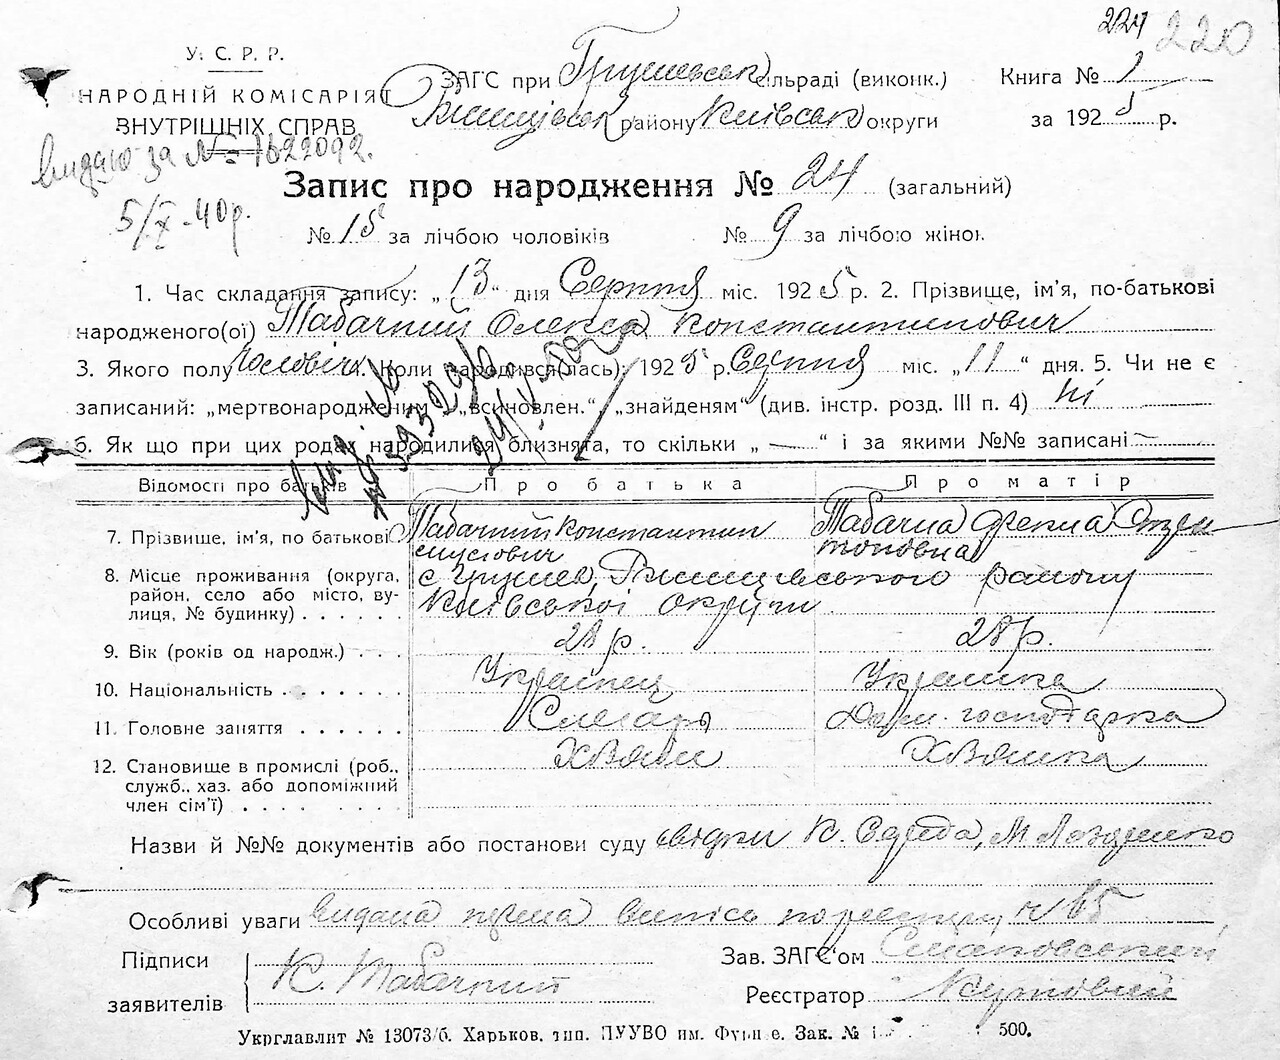 224 220
У. С. Р. Р.
НАРОДНІЙ КОМІСАРІЯТ
ВНУТРІШНІХ СПРАВ
ЗАГС при Грушевськ сільраді (виконк.)
Ржищівськ району Київськ округи
Книга № 1
за 1925 р.
видано за № 1622092.
5/X-40р.
Запис про народження № 24 (загальний)
№ 15 за лічбою чоловіків № 9 за лічбою жінок
1. Час складання запису: „13“ дня Серпня міс. 1925 р. 2. Прізвище, ім'я, по-батькові
народженого(ої) Табачний Олекса Константинович
3. Якого полу Чоловіч. Коли народився(лась): 1925 р. Серпня міс. „11“ дня. 5. Чи не є
записаний: „мертвонародженим“ „всиновлен.“ „знайденям“ (див. інстр. розд. III п. 4) ні
6. Як що при цих родах народилися близнята, то скільки „—“ і за якими №№ записані —
Відомості про батьків Про батька Про матір
7. Прізвище, ім'я, по батькові Табачний Константин Табачна
8. Місце проживання (округа, район, село або місто, вулиця, № будинку) с Грушев, Ржищевського району
Київської округи
9. Вік (років од народж.) 28 р. 28 р.
10. Національність Українец Українка
11. Головне заняття Слюсарь Дом. господарка
12. Становище в промислі (роб., служб., хаз. або допоміжний член сім'ї) Хазяин Хазяйка
Назви й №№ документів або постанови суду свідки К. Середа, М
Особливі уваги видана перша випись по реестру № 65
Підписи
заявителів К. Табачний
Зав. ЗАГС'ом
Реєстратор
Укрглавліт № 13073/б. Харьков. тип. ПУУВО им. Фрунзе. Зак. № 500.